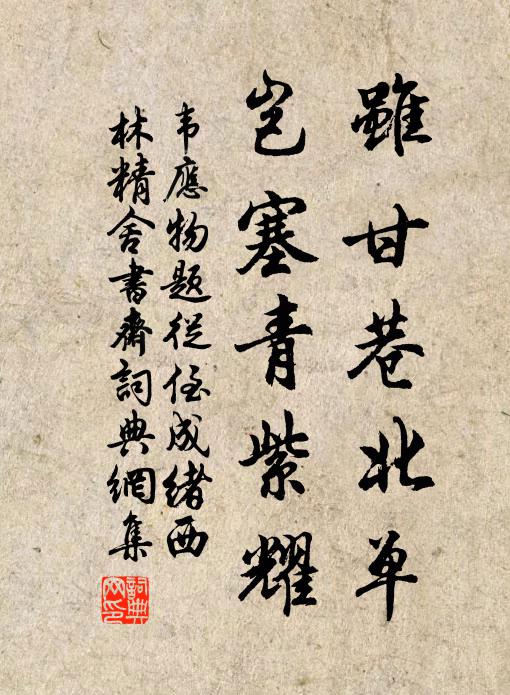 雖甘巷北单
岂塞青紫耀
韦應物題從侄成緒西
林精舍書齋詞典網集